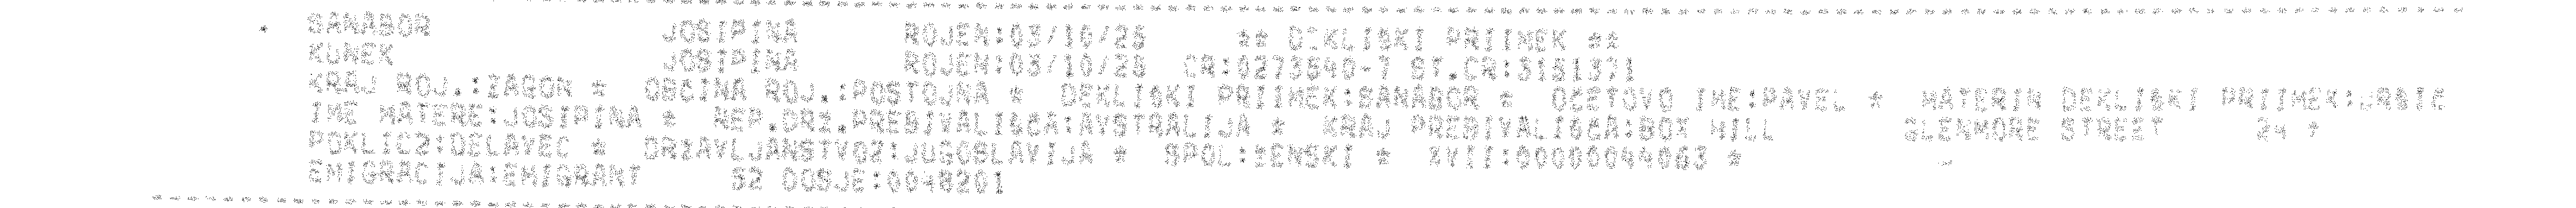 * SANABOR JOSIPINA ROJEN:03/10/25 ** DEKLISKI PRIIMEK **
KUNEK JOSIPINA ROJEN:03/10/25 CR:0273540-7 ST.CR:3151371
KRAJ ROJ.:ZAGON * OBCINA ROJ.:POSTOJNA * DEKLISKI PRIIMEK:SANABOR * OCETOVO IME:PAVEL * MATERIN DEKLISKI PRIIMEK:
IME MATERE:JOSIPINA * NEP.DRZ.PREBIVALISCA:AVSTRALIJA * KRAJ PREBIVALISCA:BOX HILL GLENMORE STREET 24 *
POKLIC2:DELAVEC * DRZAVLJANSTVO2:JUGOSLAVIJA * SPOL:ZENSKI * XVII:00000044063 *
EMIGRACIJA:EMIGRANT S2 DOSJE:0048201